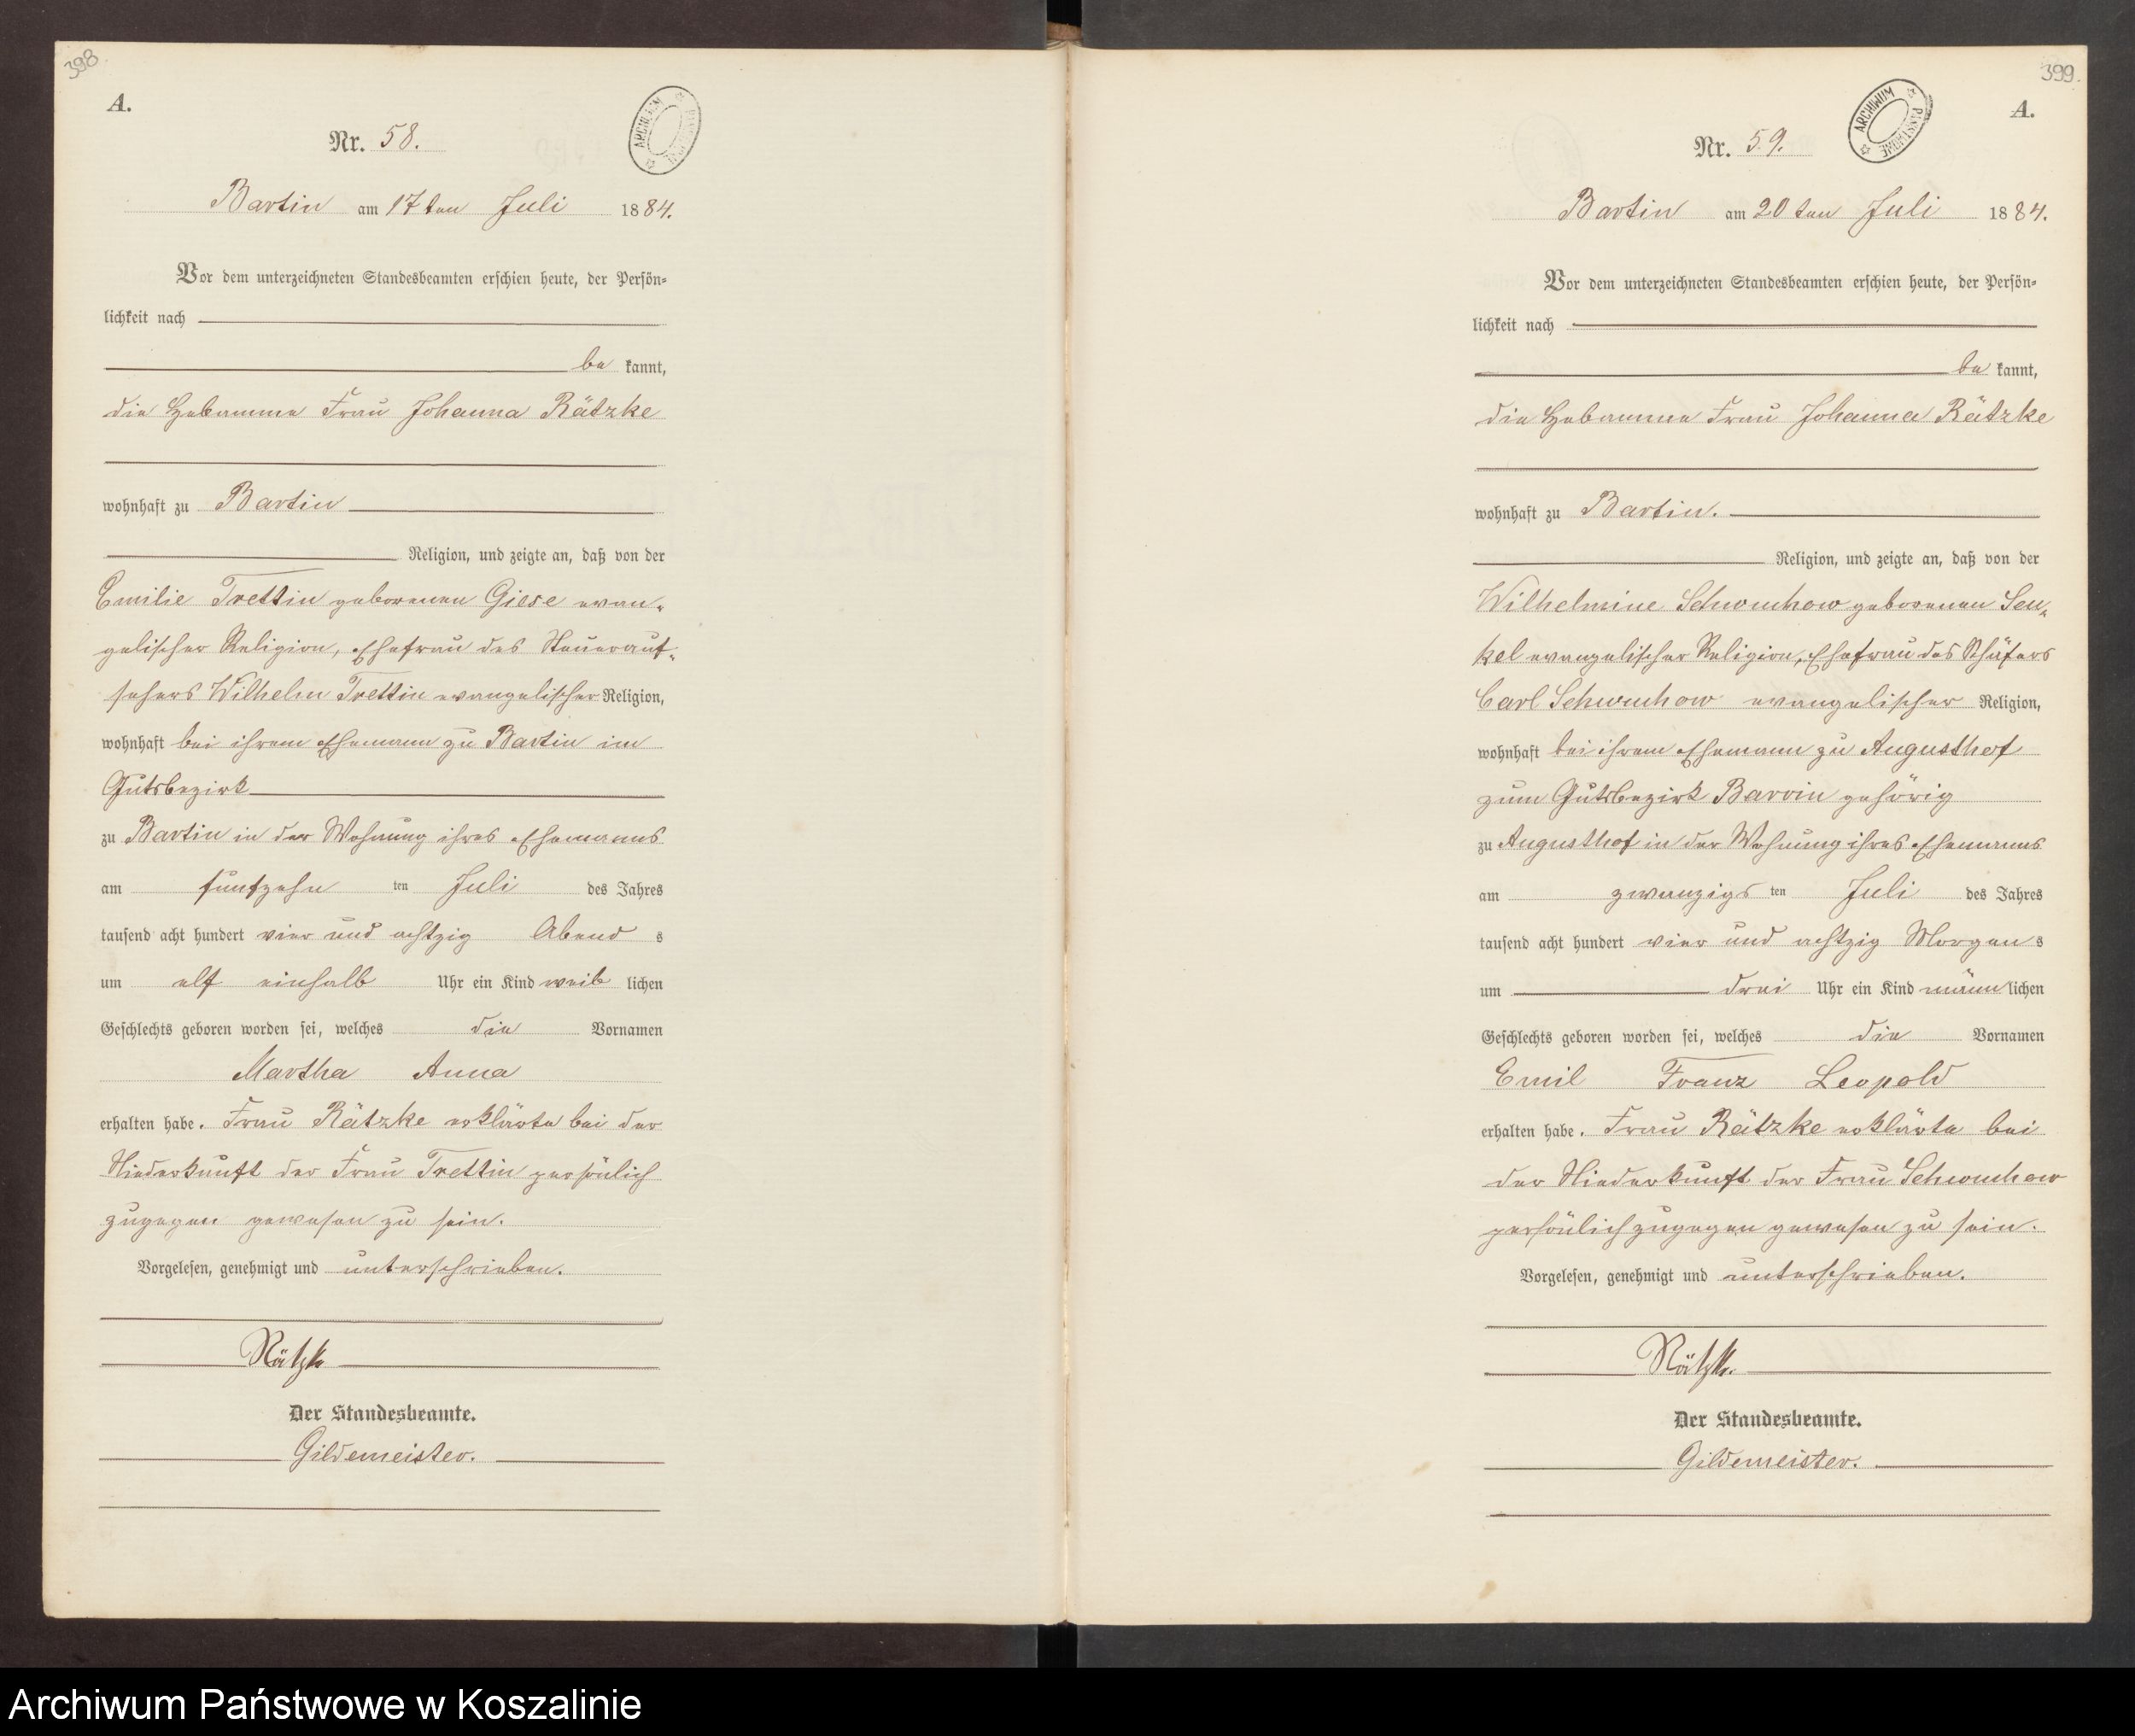 398
A.
ARCHIWUM PAŃSTWOWE
Nr. 58.
Bartin am 17ten Juli 1884.
Vor dem unterzeichneten Standesbeamten erschien heute, der Persön-
lichkeit nach
be kannt,
die Hebamme Frau Johanna Rätzke
wohnhaft zu Bartin
Religion, und zeigte an, daß von der
Emilie Trettin geborenen Giese evan-
gelischer Religion, Ehefrau des Steuerauf-
sehers Wilhelm Trettin evangelischer Religion,
wohnhaft bei ihrem Ehemann zu Bartin im
Gutsbezirk
zu Bartin in der Wohnung ihres Ehemanns
am fünfzehn ten Juli des Jahres
tausend acht hundert vier und achtzig Abend s
um elf einhalb Uhr ein Kind weib lichen
Geschlechts geboren worden sei, welches die Vornamen
Martha Anna
erhalten habe. Frau Rätzke erklärte bei der
Niederkunft der Frau Trettin persönlich
zugegen gewesen zu sein.
Vorgelesen, genehmigt und unterschrieben.
Rätzke
Der Standesbeamte.
Gildemeister.
399.
A.
ARCHIWUM PAŃSTWOWE
Nr. 59.
Bartin am 20ten Juli 1884.
Vor dem unterzeichneten Standesbeamten erschien heute, der Persön-
lichkeit nach
be kannt,
die Hebamme Frau Johanna Rätzke
wohnhaft zu Bartin.
Religion, und zeigte an, daß von der
Wilhelmine Schwuchow geborenen Sen-
kel evangelischer Religion, Ehefrau des Schäfers
Carl Schwuchow evangelischer Religion,
wohnhaft bei ihrem Ehemann zu Augusthof
zum Gutsbezirk Barvin gehörig
zu Augusthof in der Wohnung ihres Ehemanns
am zwanzigs ten Juli des Jahres
tausend acht hundert vier und achtzig Morgen s
um drei Uhr ein Kind männ lichen
Geschlechts geboren worden sei, welches die Vornamen
Emil Franz Leopold
erhalten habe. Frau Rätzke erklärte bei
der Niederkunft der Frau Schwuchow
persönlich zugegen gewesen zu sein.
Vorgelesen, genehmigt und unterschrieben.
Rätzke.
Der Standesbeamte.
Gildemeister.
Archiwum Państwowe w Koszalinie